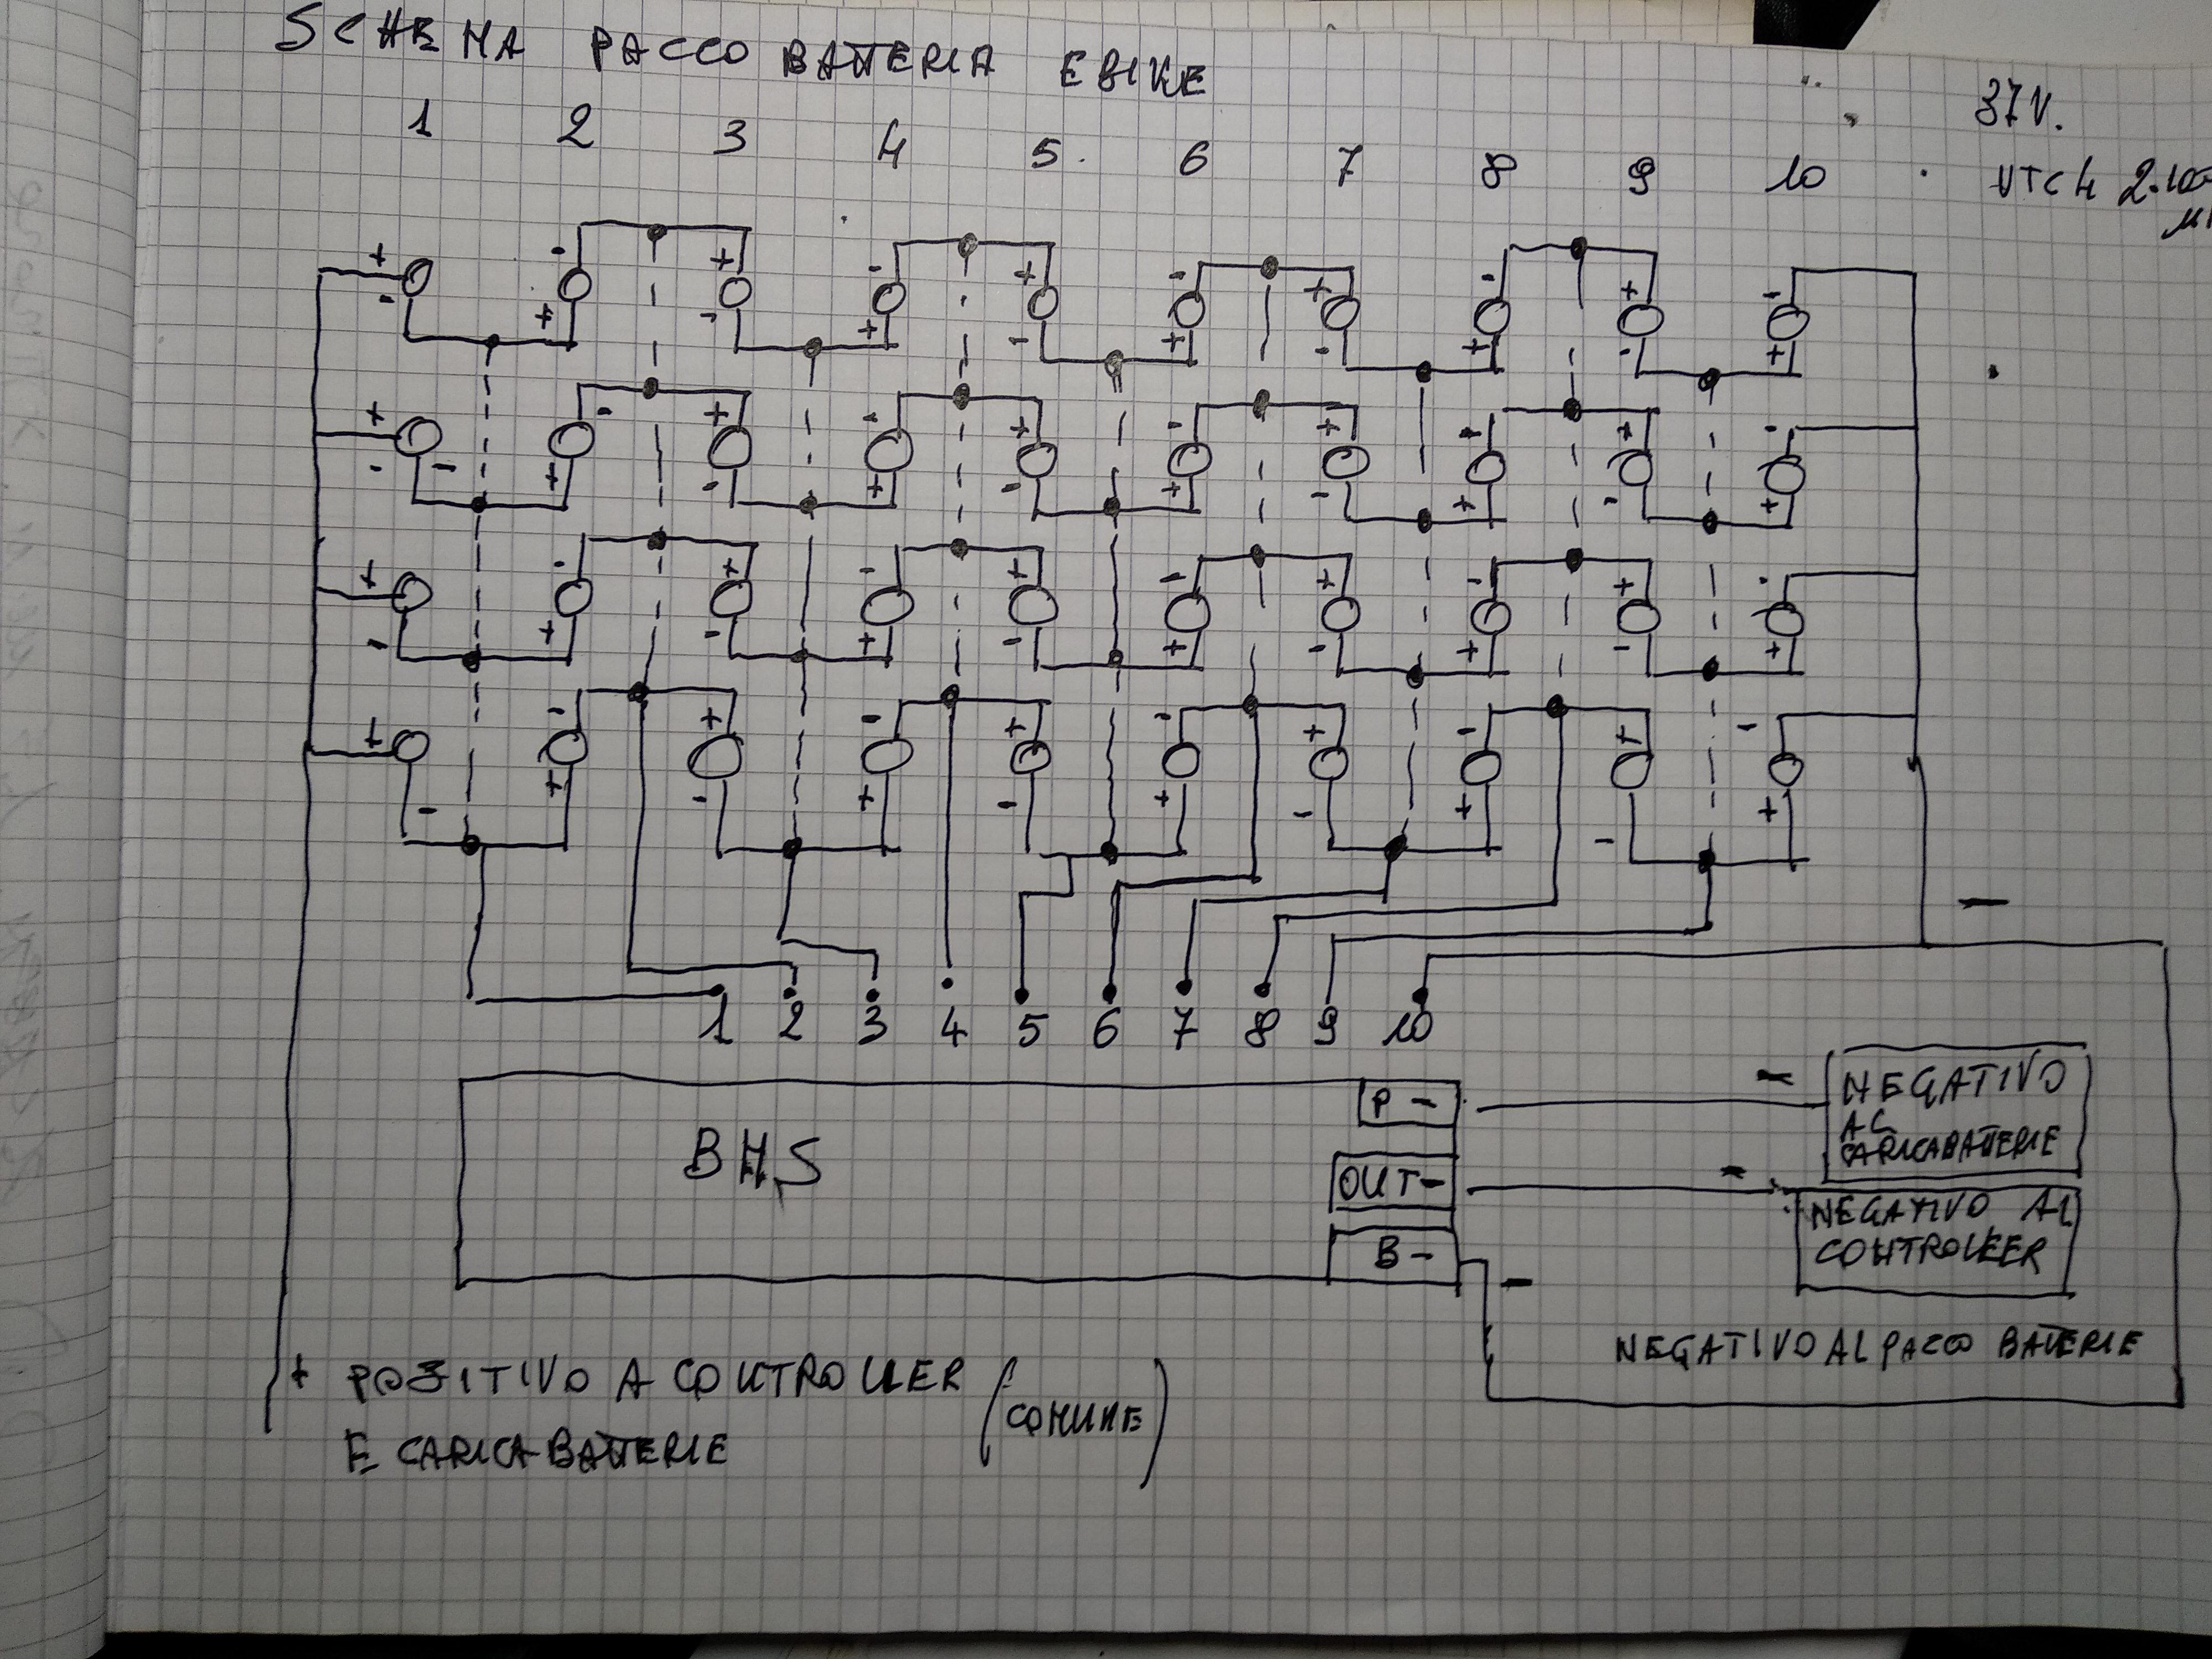 SCHEMA PACCO BATTERIA EBIKE
37V.
1 2 3 4 5. 6 7 8 9 10
VTC4 2.100
+ - + - + - + - + -
- + - + - + - + - +
+ - + - + - + - + -
- - + - + - + - + - +
+ - + - + - + - + -
- + - + - + - + - +
+ - + - + - + - + -
- + - + - + - + - +
-
1 2 3 4 5 6 7 8 9 10
BMS
P -
- NEGATIVO
AL
CARICABATTERIE
OUT -
- NEGATIVO AL
CONTROLLER
B -
-
NEGATIVO AL PACCO BATTERIE
+ POSITIVO A CONTROLLER (COMUNE)
E CARICA BATTERIE